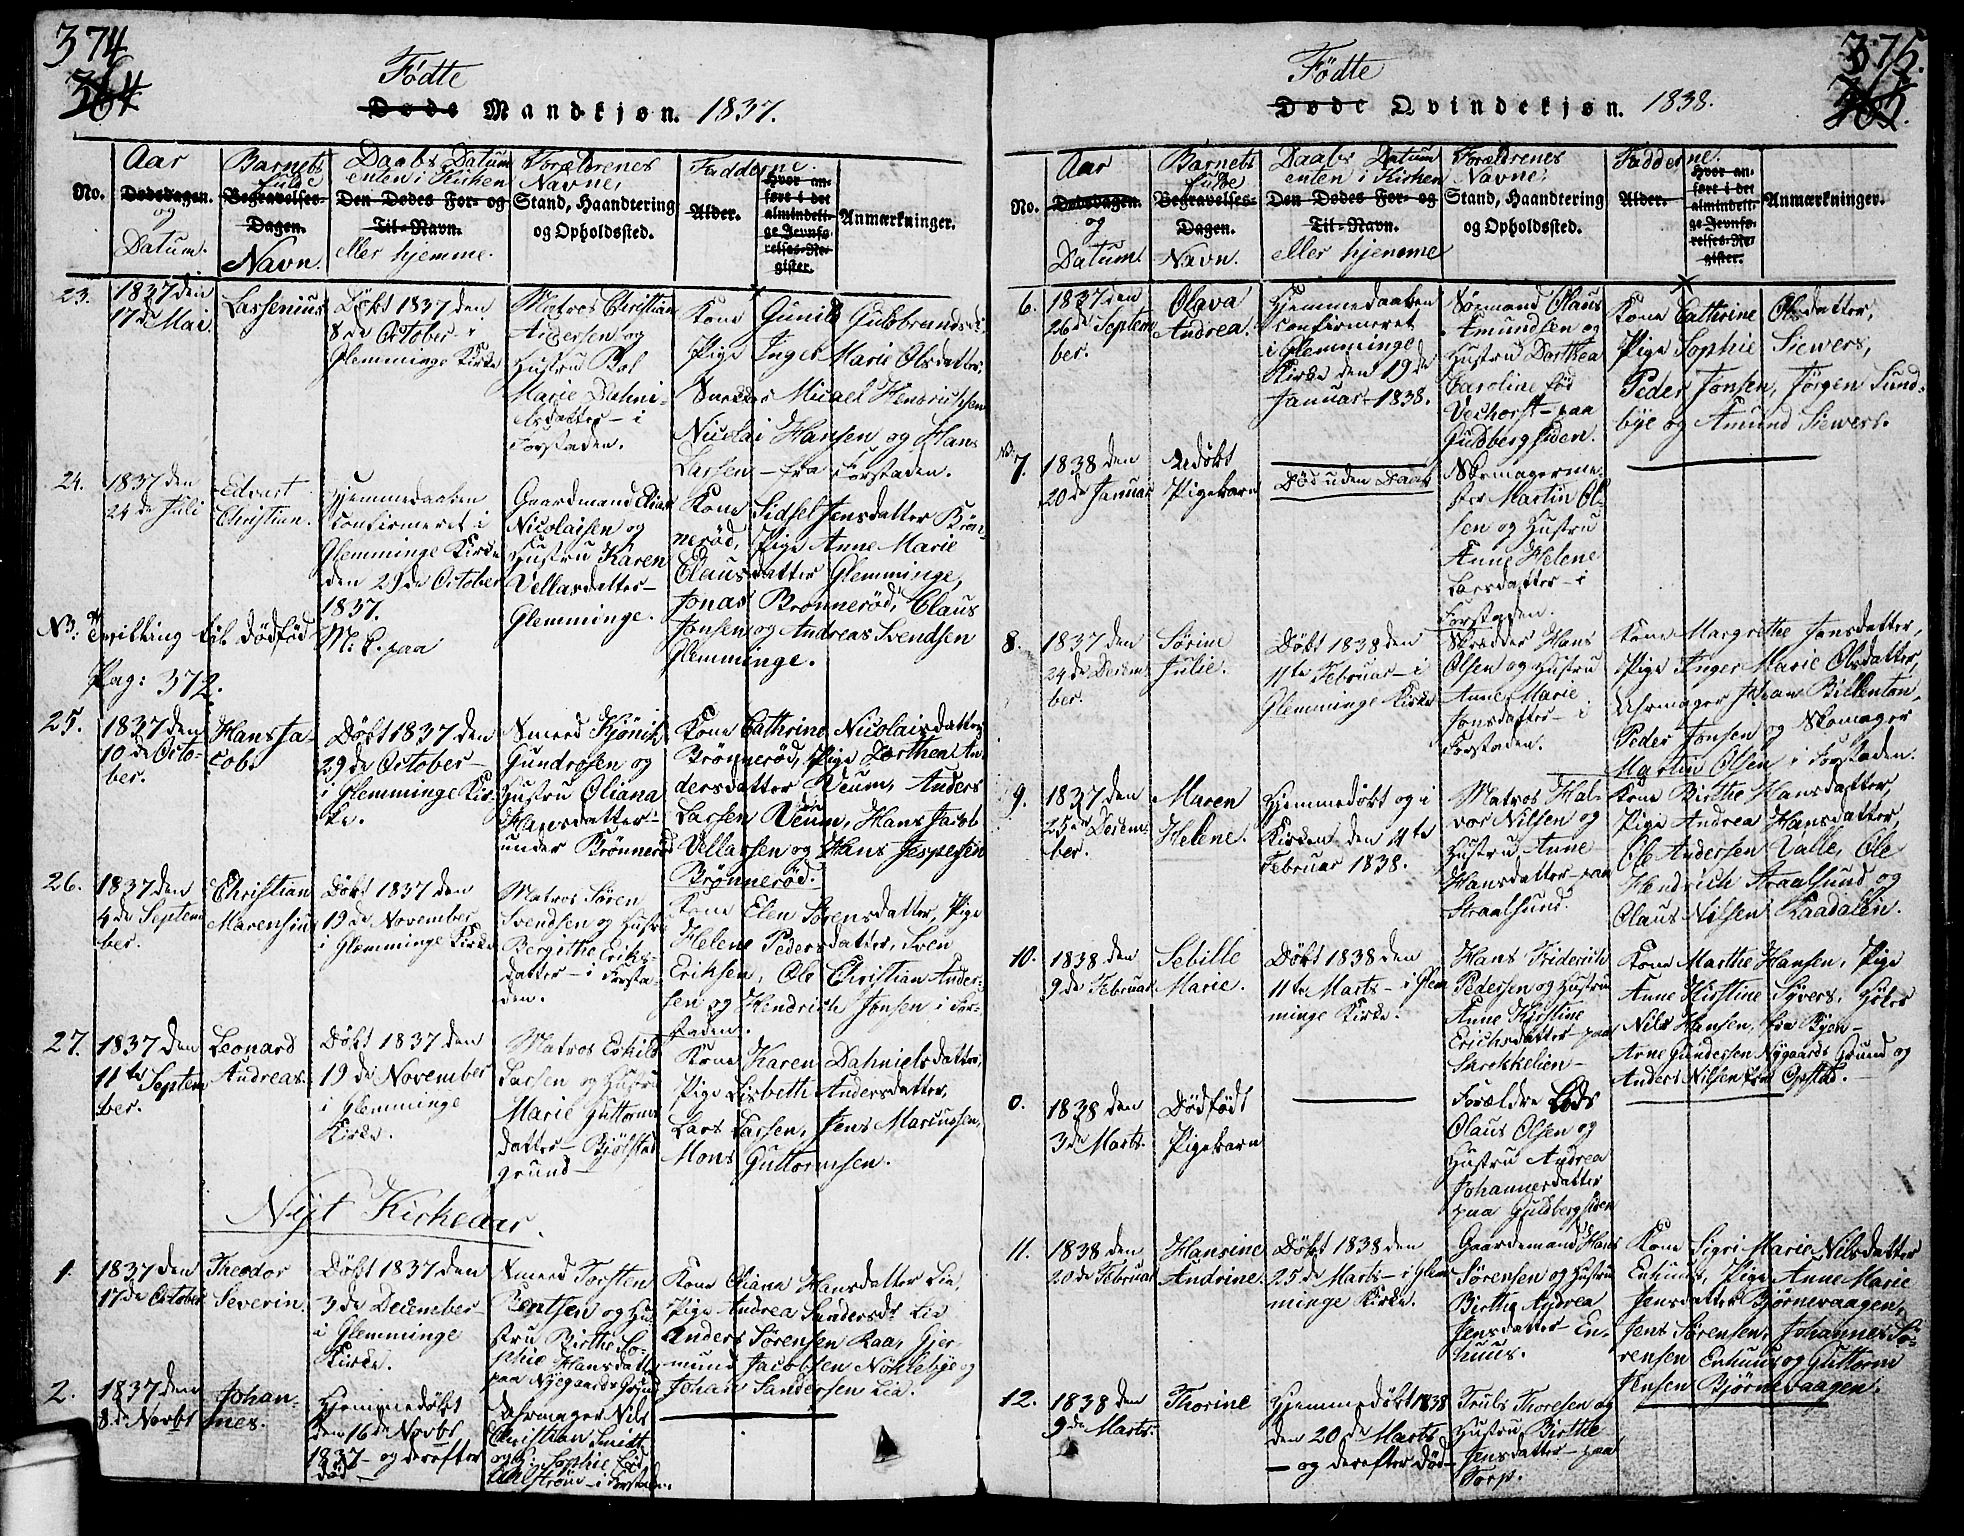 374
364
Födte
Døde Mandkjøn. 1837.
No.
Aar
Dødsdagen.
og
Datum.
Barnets
fulde
Begravelses-
Dagen.
Navn.
Daabs Datum
enten i Kirken
Den Dødes For- og
Til-Navn.
eller hjemme.
Forældrenes
Navne,
Stand, Haandtering
og Opholdssted.
Fadderne.
Alder.
Hvor an-
ført i det
almindeli-
ge Jevnfø-
relses-Re-
gister.
Anmærkninger.
23.
1837 den
17de Mai
Lassenius
Döbt 1837 den
8de October i
Glemminge Kirke
Matros Christian
Andersen og
Hustru Bol
Marie Dahni-
elsdatter - i
Forstaden.
Kone Gunild Guldbrandsd.
Pige Inger Marie Olsdatter,
Snedker Micael Hendrichsen
Nicolai Hansen og Hans
Larsen - fra Forstaden.
24.
1837 den
24de Juli
Edvart
Christian.
Hjemmedaaben
Confirmeret i
Glemminge Kirke
den 29de October
1837.
Gaardmand Elias
Nicolaisen og
Hustru Karen
Vellasdatter -
Glemminge.
Kone Sidsel Jensdatter Brön-
neröd, Pige Anne Marie
Clausdatter Glemminge,
Jonas Brönneröd, Claus
Jonsen og Andreas Svendsen
Glemminge.
NB: Tvilling til dödföd
M: K. paa
Pag: 372.
25.
1837 den
10de Octo-
ber.
Hans Ja-
cob.
Döbt 1837 den
29de October -
i Glemminge Kir-
ke.
Smed Kjönik
Gundersen og
Hustru Oliana
Hansdatter -
under Brönneröd
Kone Cathrine Nicolaisdatter
Brönneröd, Pige Dorthea An-
dersdatter Veum, Anders
Larsen Veum, Hans Jacob
Vellassen og Hans Jespersen
Brönneröd.
26.
1837 den
4de Septem
ber.
Christian
Marensius
Döbt 1837 den
19de November
i Glemminge Kirke
Matros Sören
Svendsen og Hustru
Bergithe Eriks-
datter - i Forsta-
den.
Kone Elen Sörensdatter, Pige
Helene Pedersdatter, Sven
Eriksen, Ole Christian Ander-
sen og Hendrich Jonsen i For-
staden.
27.
1837 den
11te Septem
ber.
Leonard
Andreas.
Döbt 1837 den
19de November
i Glemminge
Kirke.
Matros Eskild
Larsen og Hustru
Marie Guttorms-
datter - Bjölstad
grund -
Kone Karen Dahnielsdatter,
Pige Lisbeth Andersdatter,
Lars Larsen, Jens Marcussen,
Mons Guttormsen.
Nyt Kirkeaar.
1.
1837 den
17de October
Theodor
Severin.
Döbt 1837 den
3de December -
i Glemminge
Kirke.
Smed Torsten
Bentsen og Hu-
stru Birthe So-
phie Hansdatter
paa Nygaards Grund
Kone Oliana Hansdatter Lie,
Pige Andrea Sandersdr Lie
Anders Sörensen Raa, Gjer
mund Jacobsen Nöklebye og
Johan Sandersen Lie.
2.
1837 den
8de Novbr
Johan-
nes.
Hjemmedöbt
den 16de Novbr
1837 - og derefter
död
Uhrmager Nils
Christian Smidt
og H: Sophie föd
Ahlström - i Forstaden.
375.
365.
Födte
Døde Qvindekjøn. 1838.
No.
Aar
Dødsdagen.
og
Datum
Barnets
fulde
Begravelses-
Dagen.
Navn.
Daabs Datum
enten i Kirken
Den Dødes For- og
Til-Navn.
eller hjemme
Forældrenes
Navne,
Stand, Haandtering
og Opholdssted.
Fadderne.
Alder.
Hvor an-
ført i det
almindeli-
ge Jevnfø-
relses-Re-
gister.
Anmærkninger.
6.
1837 den
26de Septem
ber.
Olava
Andrea.
Hjemmedaaben
Confirmeret
i Glemminge
Kirke den 19de
Januar 1838.
Sömand Olaus
Amundsen og
Hustru Dorthea
Caroline föd
Vechorst - paa
Guldbergsiden.
Kone Cathrine Olsdatter,
Pige Sophie Siewers,
Peder Jonsen, Jörgen Sund-
bye og Amund Siewers.
NB
7.
1838 den
20de Januar
Udöbt
Pigebarn
Död uden Daab
Skomagerme-
ster Martin Ol-
sen og Hustru
Anne Helene
Larsdatter - i
Forstaden.
8.
1837 den
24de Decem-
ber.
Sörine
Julie.
Döbt 1838 den
11te Februar - i
Glemminge Kirke
Skredder Hans
Olsen og Hustru
Anne Marie
Jonsdatter - i
Forstaden.
Kone Margrethe Jensdatter,
Pige Inger Marie Olsdatter,
Uhrmager Johan Billenton,
Peder Jonsen og Skomager
Martin Olsen i Forstaden.
9.
1837 den
25de Decem-
ber.
Maren
Helene.
Hjemmedöbt og i
Kirken den 11te
Februar 1838.
Matros Hal-
vor Nilsen og
Hustru Anne
Hansdatter - paa
Straalsund.
Kone Birthe Hansdatter,
Pige Andrea Hansdatter,
Ole Andersen Valle, Ole
Hendrich Straalsund og
Claus Nilsen Kaadalen.
10.
1838 den
9de Februar
Sebille
Marie.
Döbt 1838 den
11te Marts - i Glem
minge Kirke.
Hans Friderich
Pedersen og Hustru
Anne Kirstine
Erichsdatter - paa
Skrekkelien -
Kone Marthe Hansen, Pige
Anne Kirstine Syvers,
Nils Hansen, fra Byen -
Arne Gundersen Nygaards Grund og
Anders Nilsen fra Opstad. -
0.
1838 den
3de Marts.
Dödfödt
Pigebarn
Forældre Lods
Olaus Olsen og
Hustru Andrea
Johannesdatter
paa Guldbergsiden
11.
1838 den
20de Februar
Hansine
Andrine.
Döbt 1838 den
25de Marts - i Glem
minge Kirke.
Gaardemand Hans
Sörensen og Hustru
Birthe Andrea
Jensdatter - En-
huus.
Kone Sigri Marie Nilsdatter
Enhuus, Pige Anne Marie
Jensdatter Björnevaagen,
Jens Sörensen, Johannes Sö-
rensen Enhuus og Guttorm
Jensen Björnevaagen.
12.
1838 den
9de Marts.
Thorine
Hjemmedöbt 1838
den 20de Marts
- og derefter Död -
Truls Thoresen og
Hustru Birthe
Jensdatter - paa
Torp.